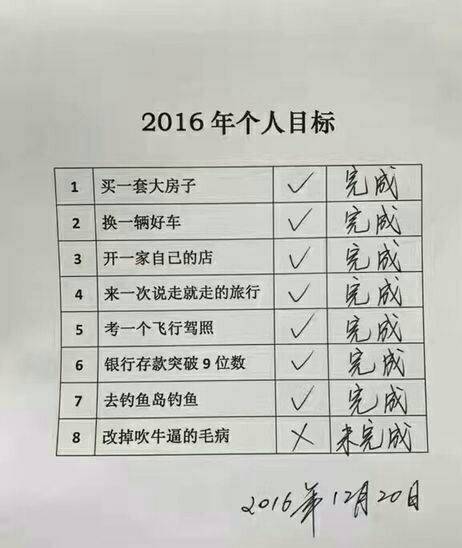 2016 年个人目标
1 买一套大房子 ✓ 完成
2 换一辆好车 ✓ 完成
3 开一家自己的店 ✓ 完成
4 来一次说走就走的旅行 ✓ 完成
5 考一个飞行驾照 ✓ 完成
6 银行存款突破 9 位数 ✓ 完成
7 去钓鱼岛钓鱼 ✓ 完成
8 改掉吹牛逼的毛病 × 未完成
2016年12月20日